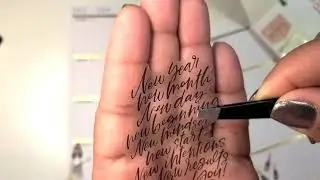 New year
New month
New day
New beginning
New mindset
New start
New intentions
New results